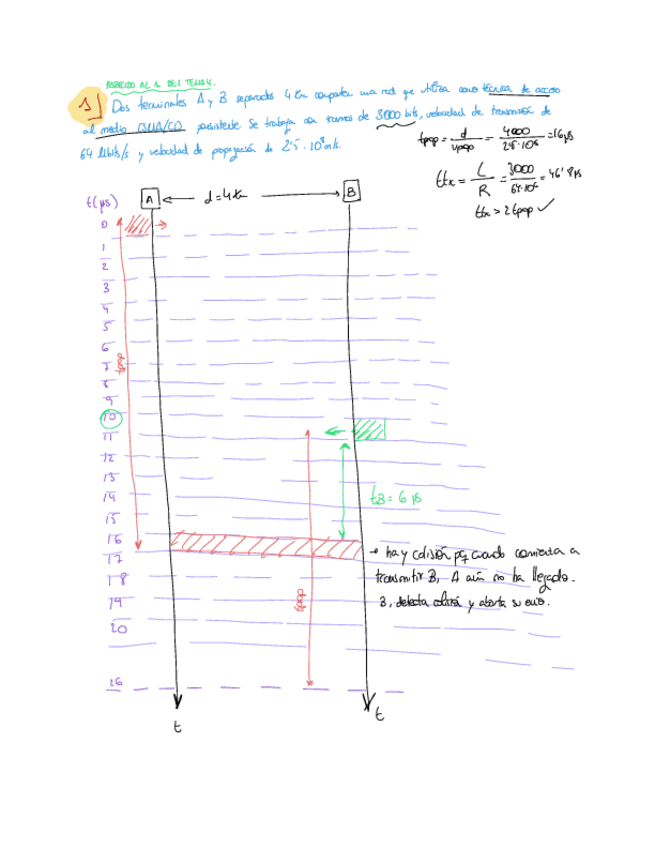 PARECIDO AL 1 DEL TEMA 4.
1) Dos terminales A y B separados 4 km comparten una red que utiliza como técnica de acceso
al medio CSMA/CD persistente. Se trabaja con tramas de 3000 bits, velocidad de transmisión de
64 Mbits/s y velocidad de propagación de 2'5 · 10⁸ m/s.
tprop = d / vprop = 4000 / 2'5·10⁸ = 16 µs
ttx = L / R = 3000 / 64·10⁶ = 46'8 µs
ttx > 2tprop ✓
t(µs) A ← d = 4 km → B
0
1
2
3
4
5
6
7
tprop
8
9
10
11
12
13
14
tB = 6 µs
15
16
→ hay colisión pq cuando comienza a
17
transmitir B, A aún no ha llegado.
18
B, detecta colisión y aborta su envío.
19
tprop
20
26
t
t